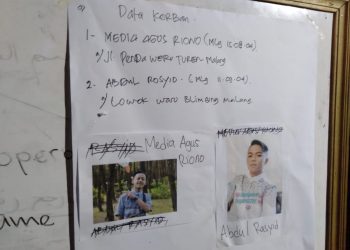 Data Korban
1- MEDIA AGUS RIONO (Mlg 15.08.04)
Jl. PERDA WERU TUREN Malang
2- ABDUL ROSYID. (Mlg 11.09.04)
Lowok waru BLIMBING MALANG
Media Agus
Riono
Abdul Rasyid
oper
ame